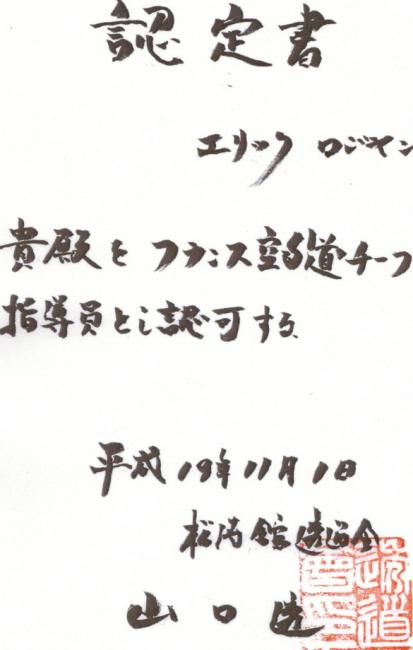 認定書
エリック ロジヤン
貴殿を フランス空手道チーフ
指導員として認可する
平成19年11月1日
松涛館
山口